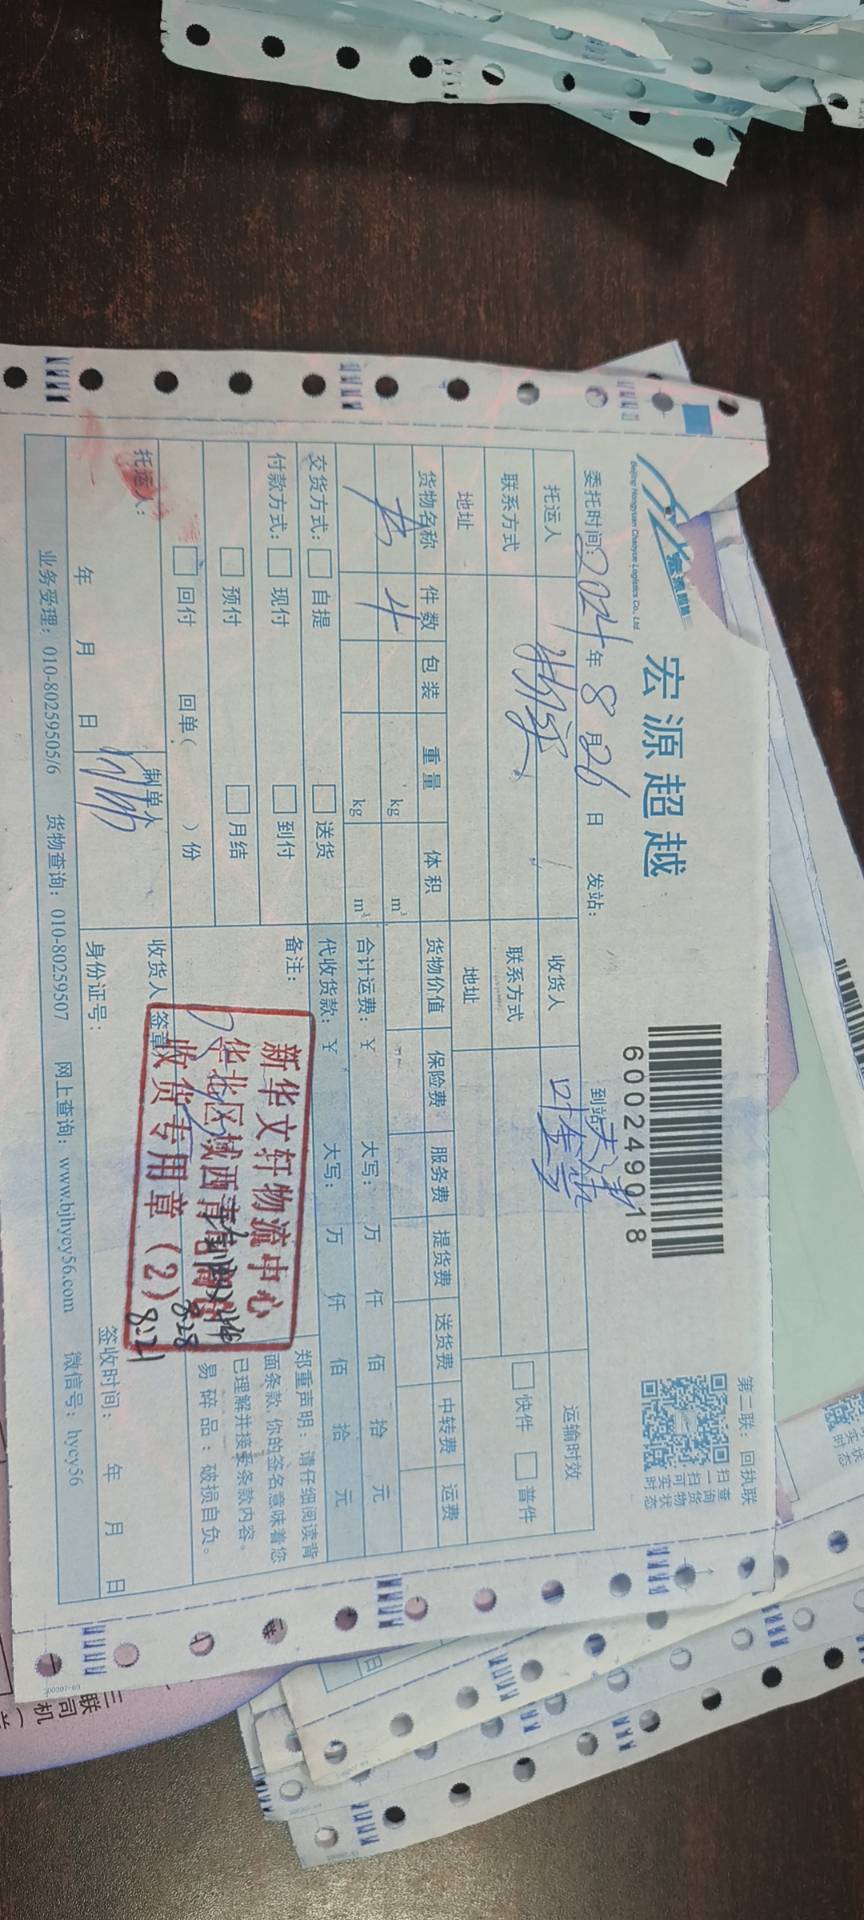 宏源超越
Beijing Hongyuan Chaoyue Logistics Co., Ltd.
600249018
第二联：回执联
扫一扫可实时
查询货物状态
委托时间：2024年8月26日 发站： 到站：天津
托运人 收货人 叶金 运输时效
联系方式 联系方式 快件 普件
地址 地址
货物名称 件数 包装 重量 体积 货物价值 保险费 服务费 提货费 送货费 中转费 运费
书 4 kg m³
kg m³ 合计运费：￥ 大写： 万 仟 佰 拾 元
交货方式： 自提 送货 代收货款：￥ 大写： 万 仟 佰 拾 元
付款方式： 现付 到付 备注：
预付 月结
回付 回单（ ）份
郑重声明：请仔细阅读背
面条款，你的签名意味着您
已理解并接受条款内容。
易碎品：破损自负。
新华文轩物流中心
华北区域西青
收货专用章（2）
8.28
8:21
托运人： 制单人 收货人 签章
年 月 日 身份证号： 签收时间： 年 月 日
业务受理：010-80259505/6 货物查询：010-80259507 网上查询：www.bjhycy56.com 微信号：hycy56
三联司机